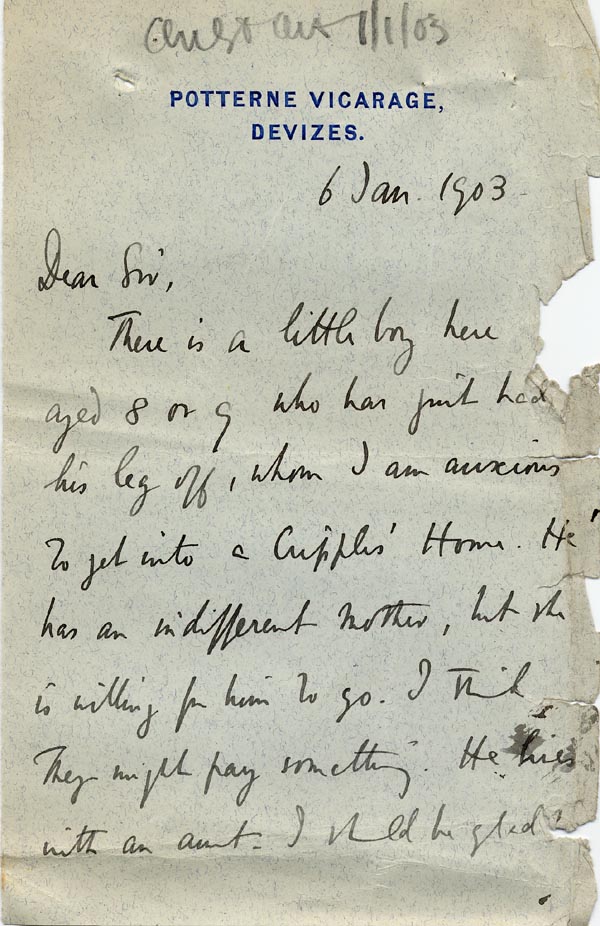 1/1/03
POTTERNE VICARAGE,
DEVIZES.
6 Jan. 1903
Dear Sir,
There is a little boy here
aged 8 or 9 who has just had
his leg off, whom I am anxious
to get into a Cripples' Home. He
has an indifferent mother, but she
is willing for him to go. I think
They might pay something. He lives
with an aunt. I should be glad